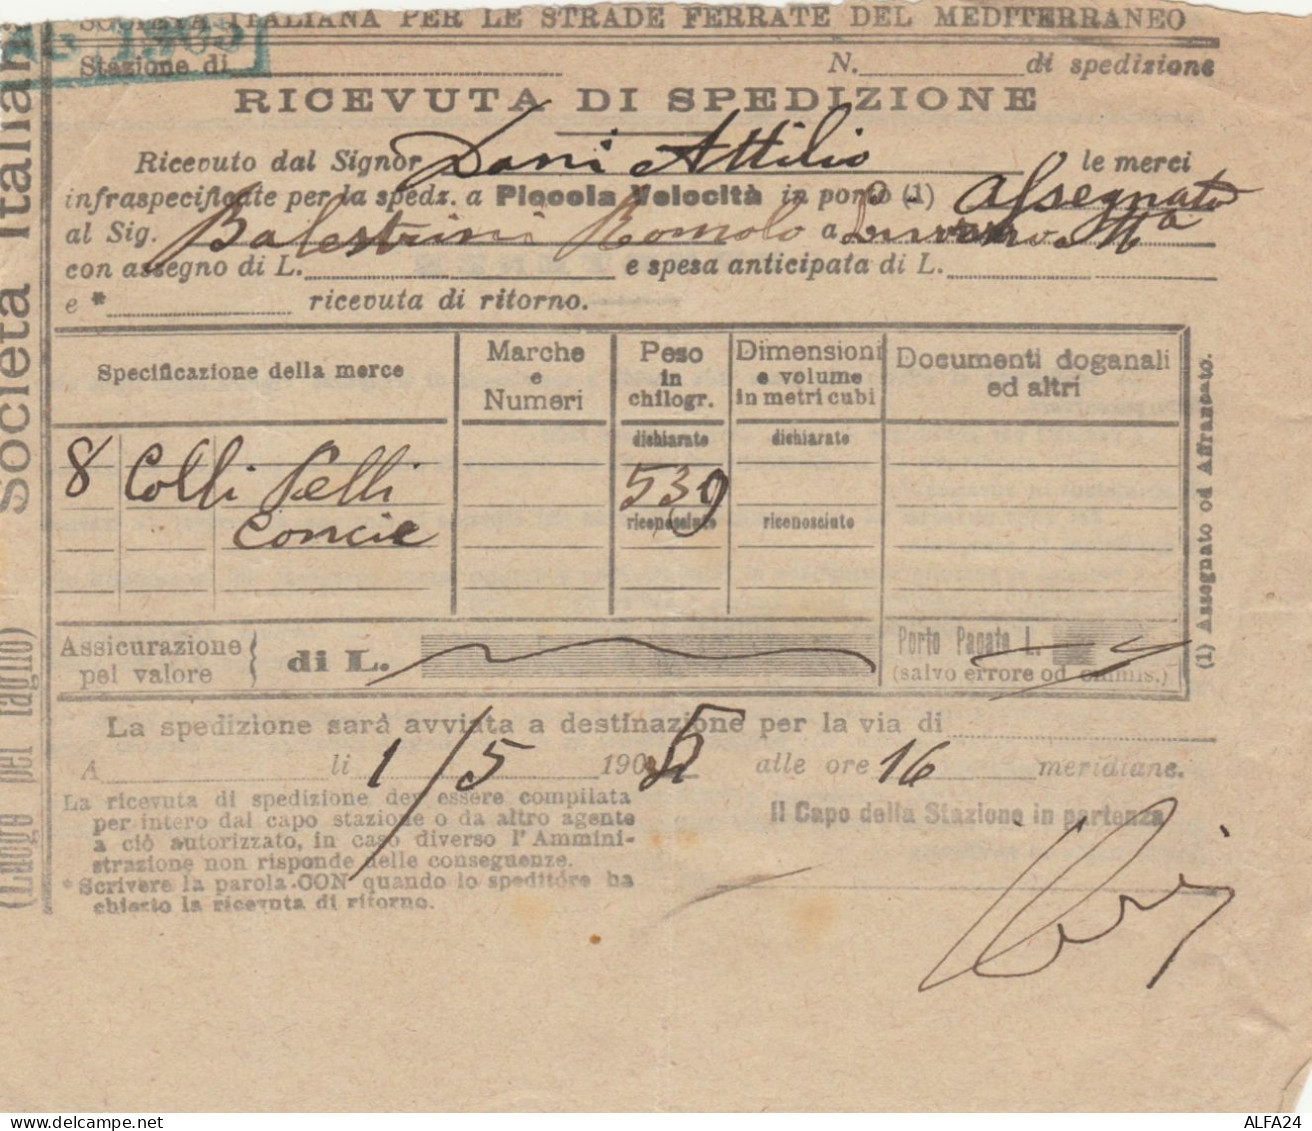 SOCIETÀ ITALIANA PER LE STRADE FERRATE DEL MEDITERRANEO
1905
Stazione di
N. di spedizione
RICEVUTA DI SPEDIZIONE
Ricevuto dal Signor Dani Attilio le merci
infraspecificate per la spedz. a Piccola Velocità in porto (1) assegnato
al Sig. Balestrini Romolo a
con assegno di L. e spesa anticipata di L.
e * ricevuta di ritorno.
Specificazione della merce
Marche e Numeri
Peso in chilogr.
Dimensioni e volume in metri cubi
Documenti doganali ed altri
dichiarato dichiarato
8 Colli Pelli 539
concie
riconosciuto riconosciuto
Assicurazione pel valore { di L.
Porto Pagato L.
(salvo errore od ommis.)
La spedizione sarà avviata a destinazione per la via di
A li 1/5 1905 alle ore 16 meridiane.
La ricevuta di spedizione dev'essere compilata
per intero dal capo stazione o da altro agente
a ciò autorizzato, in caso diverso l'Ammini-
strazione non risponde delle conseguenze.
* Scrivere la parola CON quando lo speditore ha
chiesto la ricevuta di ritorno.
Il Capo della Stazione in partenza
(1) Assegnato od Affrancato.
Società Italiana
(Luogo pel taglio)
ALFA24
delcampe.net